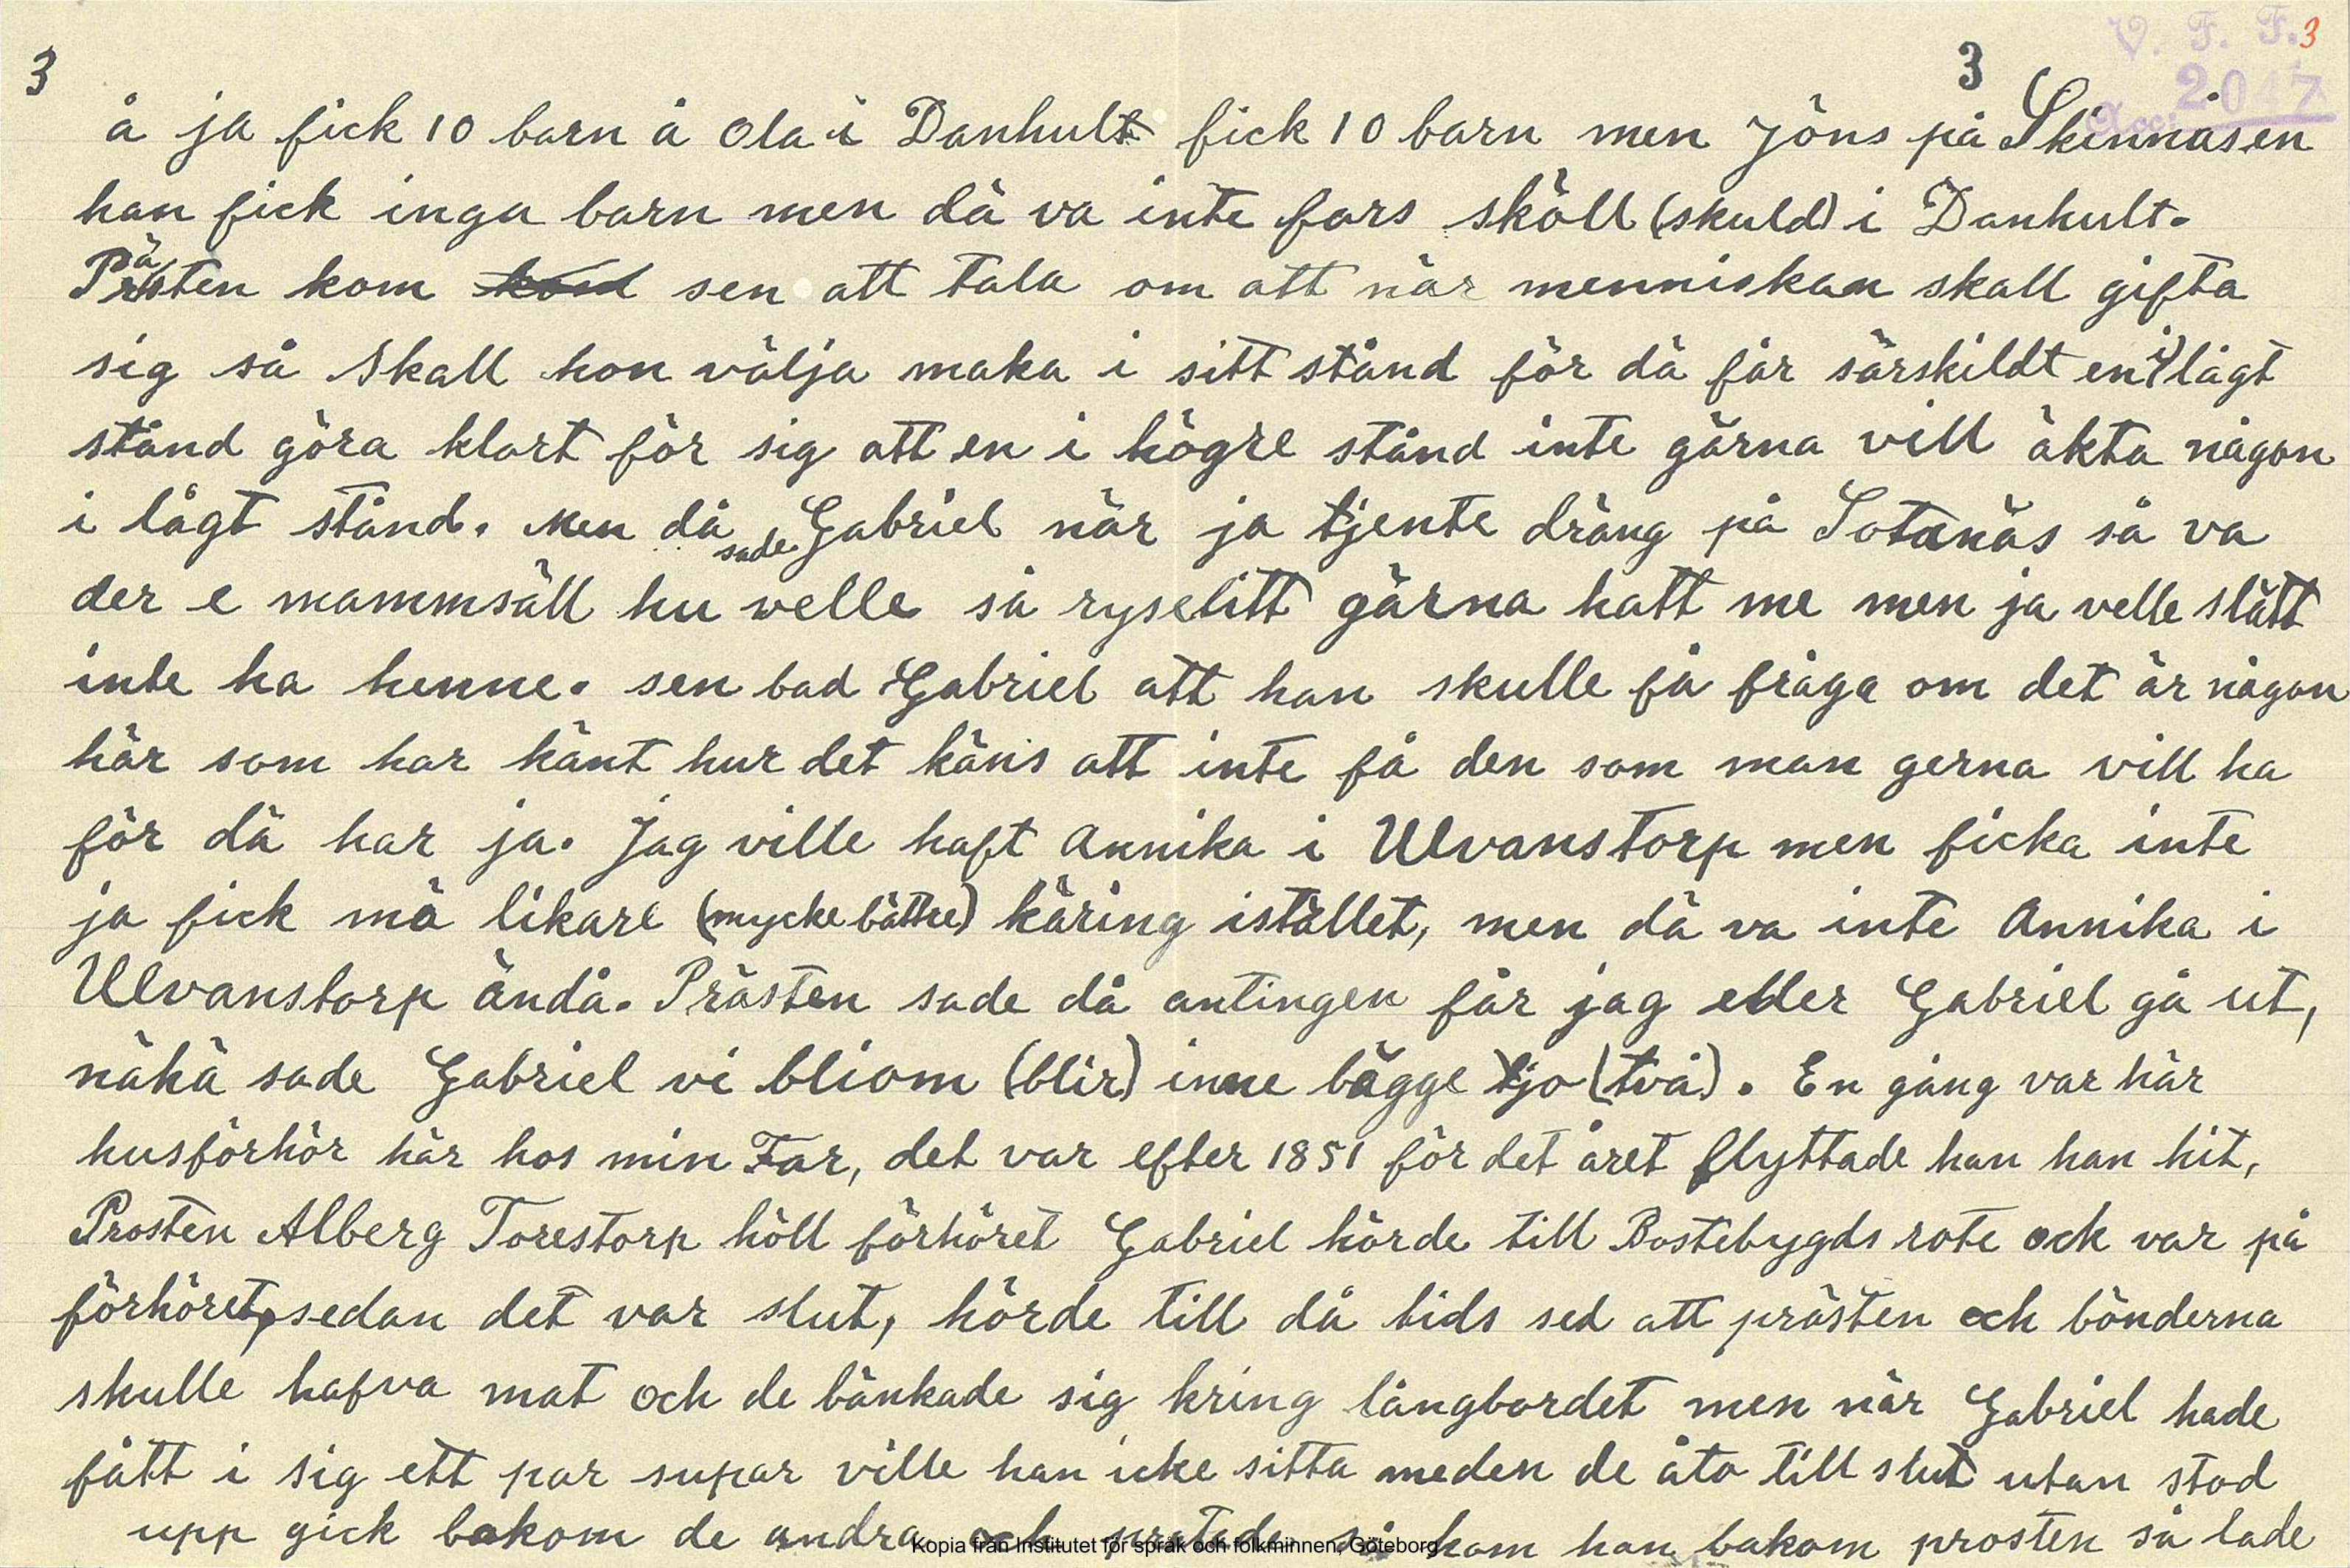 V. F. F. 3
3
3
Acc. 2047
å ja fick 10 barn å Ola i Danhult fick 10 barn men Jöns på Skinnåsen
han fick inga barn men dä va inte fars sköll (skuld) i Danhult.
Prästen kom sen att tala om att när menniskan skall gifta
sig så skall hon välja maka i sitt stånd för dä får särskildt en i lågt
stånd göra klart för sig att en i högre stånd inte gärna vill äkta någon
i lågt stånd. Men då sade Gabriel när ja tjente dräng på Sotanäs så va
der e mammsäll hu velle så ryselitt gärna hatt me men ja velle slätt
inte ha henne. sen bad Gabriel att han skulle få fråga om det är någon
här som har känt hur det käns att inte få den som man gerna vill ha
för dä har ja. Jag ville haft Annika i Ulvanstorp men ficka inte
ja fick mö likare (mycke bättre) käring istället, men dä va inte Annika i
Ulvanstorp ändå. Prästen sade då antingen får jag eller Gabriel gå ut,
nähä sade Gabriel vi bliom (blir) inne bägge tjo (två). En gång var här
husförhör här hos min Far, det var efter 1851 för det året flyttade han han hit,
Prosten Alberg Torestorp höll förhöret Gabriel hörde till Bostebygds rote ock var på
förhöret, sedan det var slut, hörde till då tids sed att prästen och bönderna
skulle hafva mat och de bänkade sig kring långbordet men när Gabriel hade
fått i sig ett par supar ville han icke sitta meden de åto till slut utan stod
upp gick bakom de andra och pratade så kom han bakom prosten så lade
Kopia från Institutet för språk och folkminnen, Göteborg